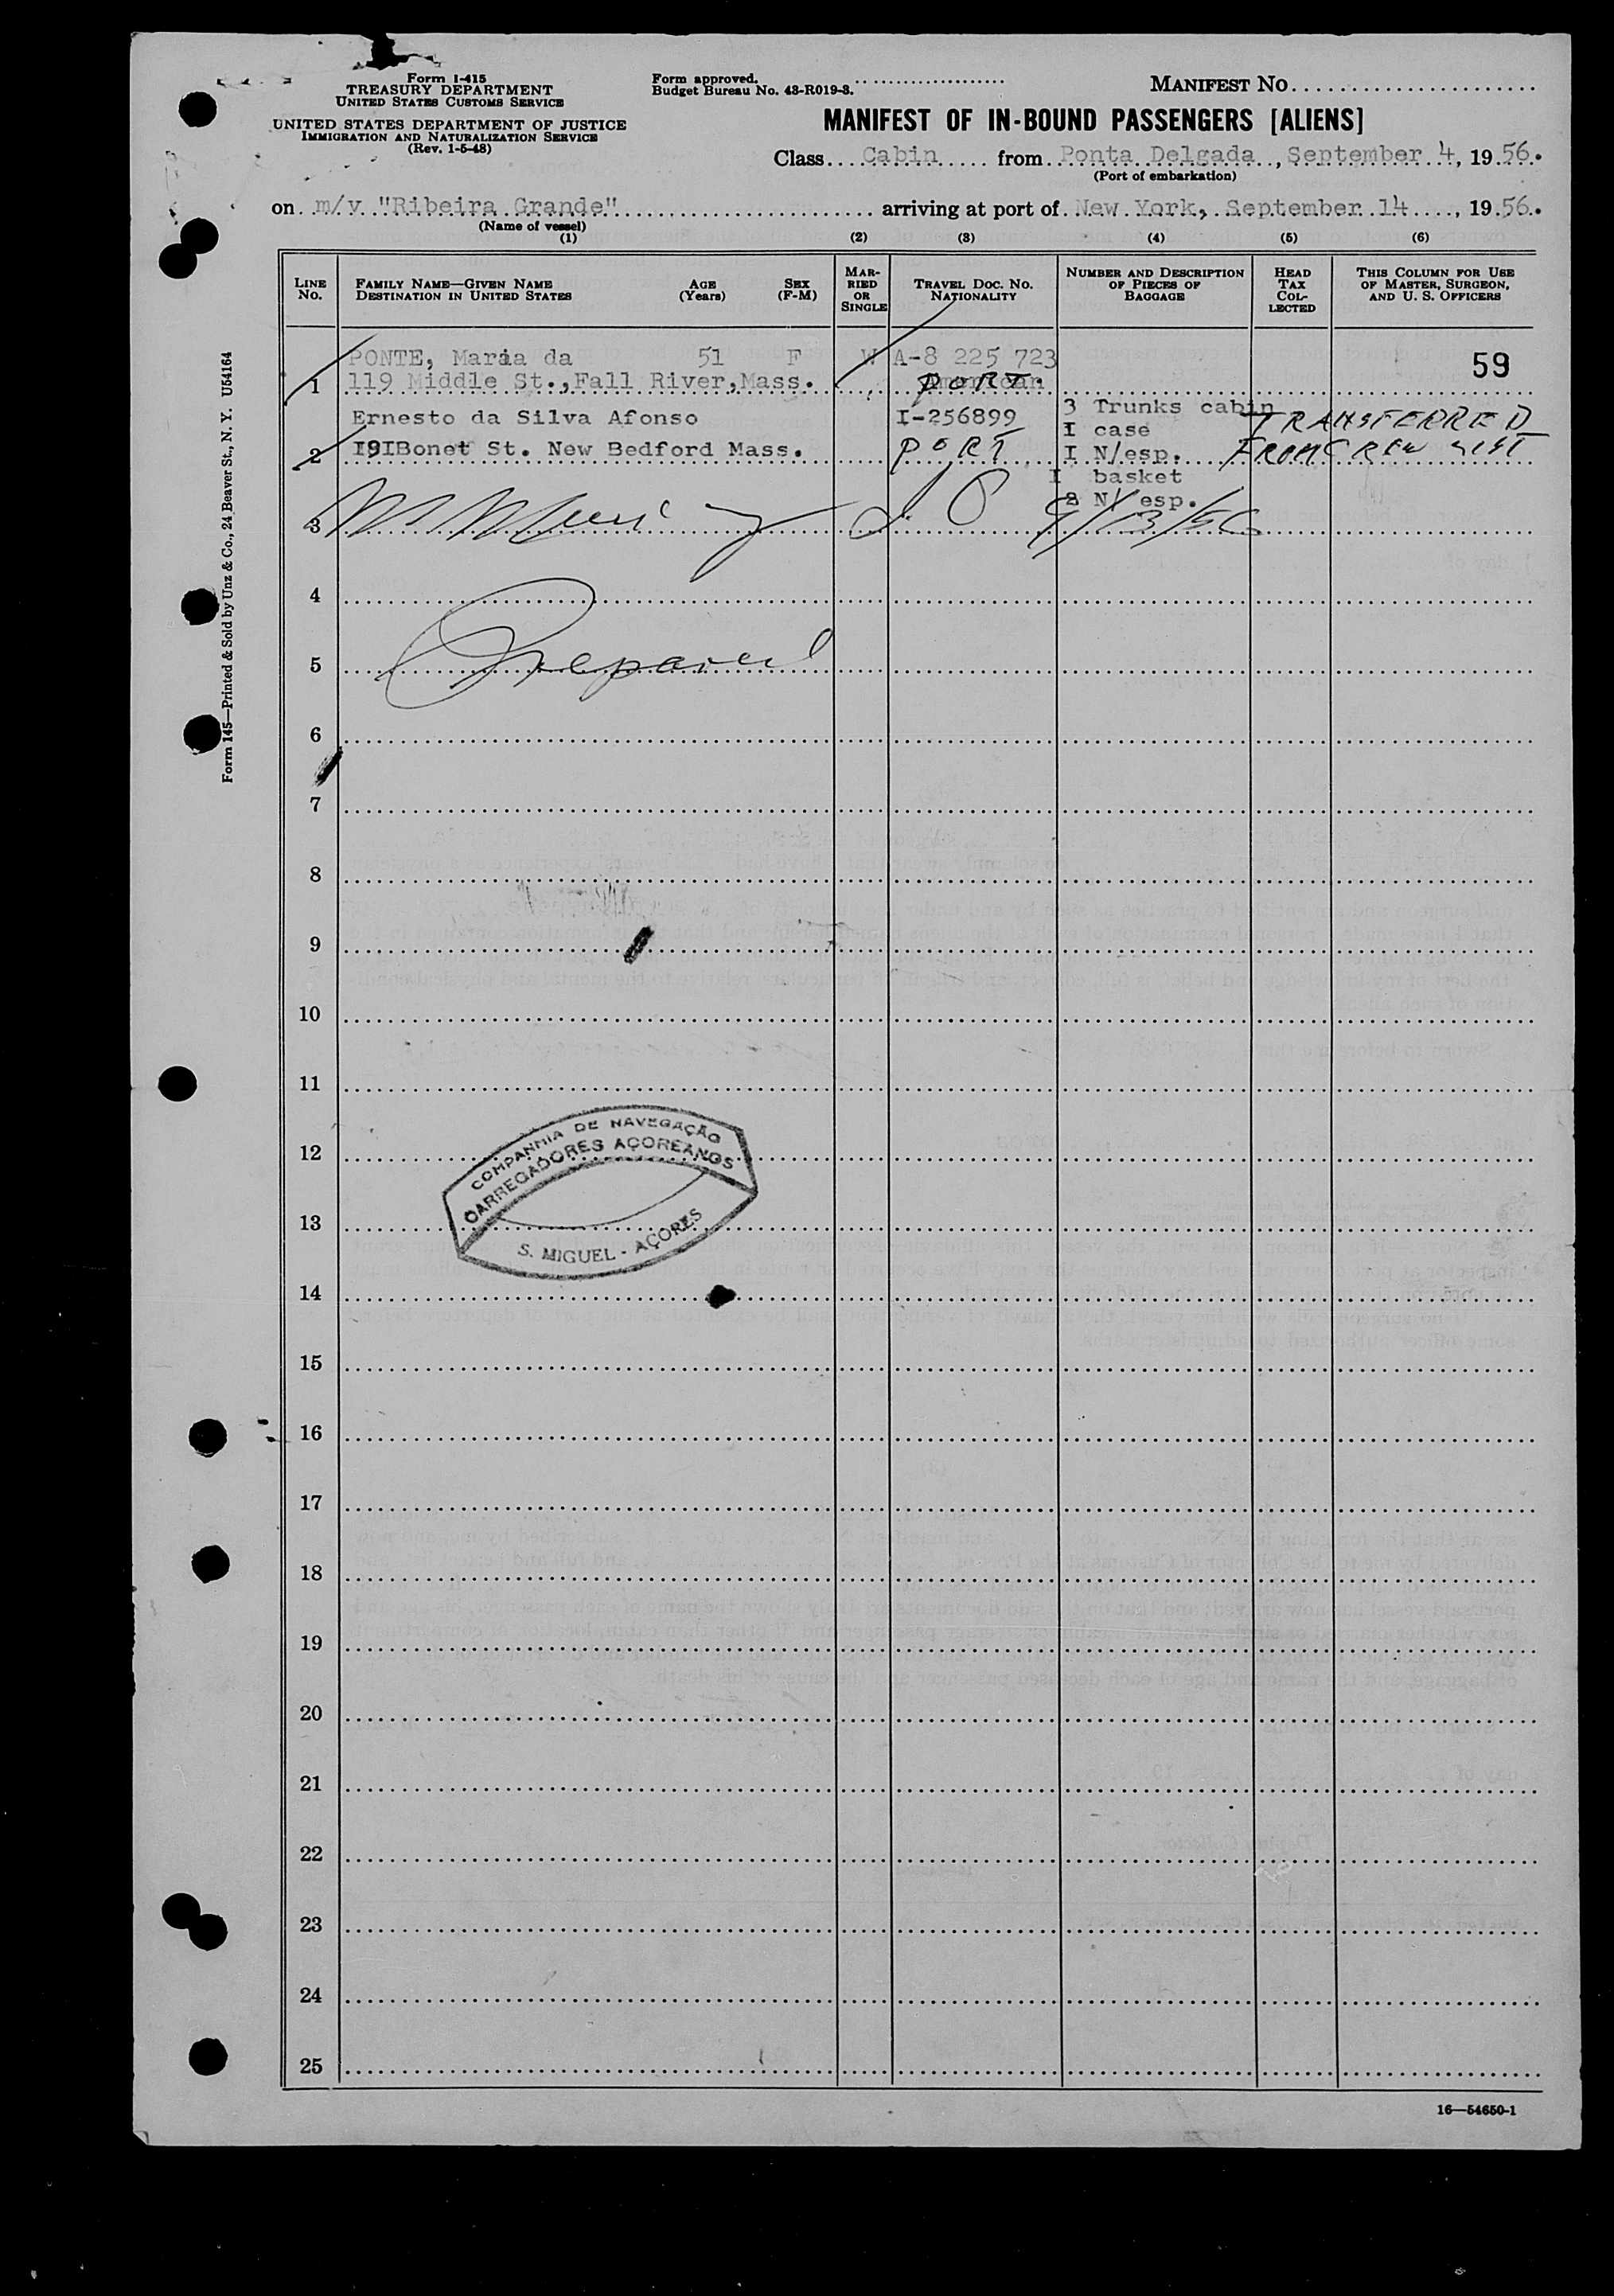 Form I-415
TREASURY DEPARTMENT
UNITED STATES CUSTOMS SERVICE
UNITED STATES DEPARTMENT OF JUSTICE
IMMIGRATION AND NATURALIZATION SERVICE
(Rev. 1-5-48)
Form approved.
Budget Bureau No. 43-R019-3.
MANIFEST NO.
MANIFEST OF IN-BOUND PASSENGERS [ALIENS]
Class Cabin from Ponta Delgada, September 4, 1956.
(Port of embarkation)
on m/v "Ribeira Grande" arriving at port of New York, September 14, 1956.
(Name of vessel)
(1) (2) (3) (4) (5) (6)
LINE No. FAMILY NAME—GIVEN NAME DESTINATION IN UNITED STATES AGE (Years) SEX (F-M) MARRIED OR SINGLE TRAVEL DOC. NO. NATIONALITY NUMBER AND DESCRIPTION OF PIECES OF BAGGAGE HEAD TAX COLLECTED THIS COLUMN FOR USE OF MASTER, SURGEON, AND U. S. OFFICERS
PONTE, Maria da 51 F W A-8 225 723 59
1 119 Middle St.,Fall River,Mass. American PORT.
Ernesto da Silva Afonso I-256899 3 Trunks cabin TRANSFERRED
I case
2 I9IBonet St. New Bedford Mass. PORT I N/esp. FROM CREW LIST
I basket
2 N/ esp.
3 9/13/56
4
5 Prepared
6
7
8
9
10
11
12
COMPANHIA DE NAVEGAÇÃO
CARREGADORES AÇOREANOS
S. MIGUEL - AÇORES
13
14
15
16
17
18
19
20
21
22
23
24
25
16—54650-1
Form 145—Printed & Sold by Unz & Co., 24 Beaver St., N. Y. U54164